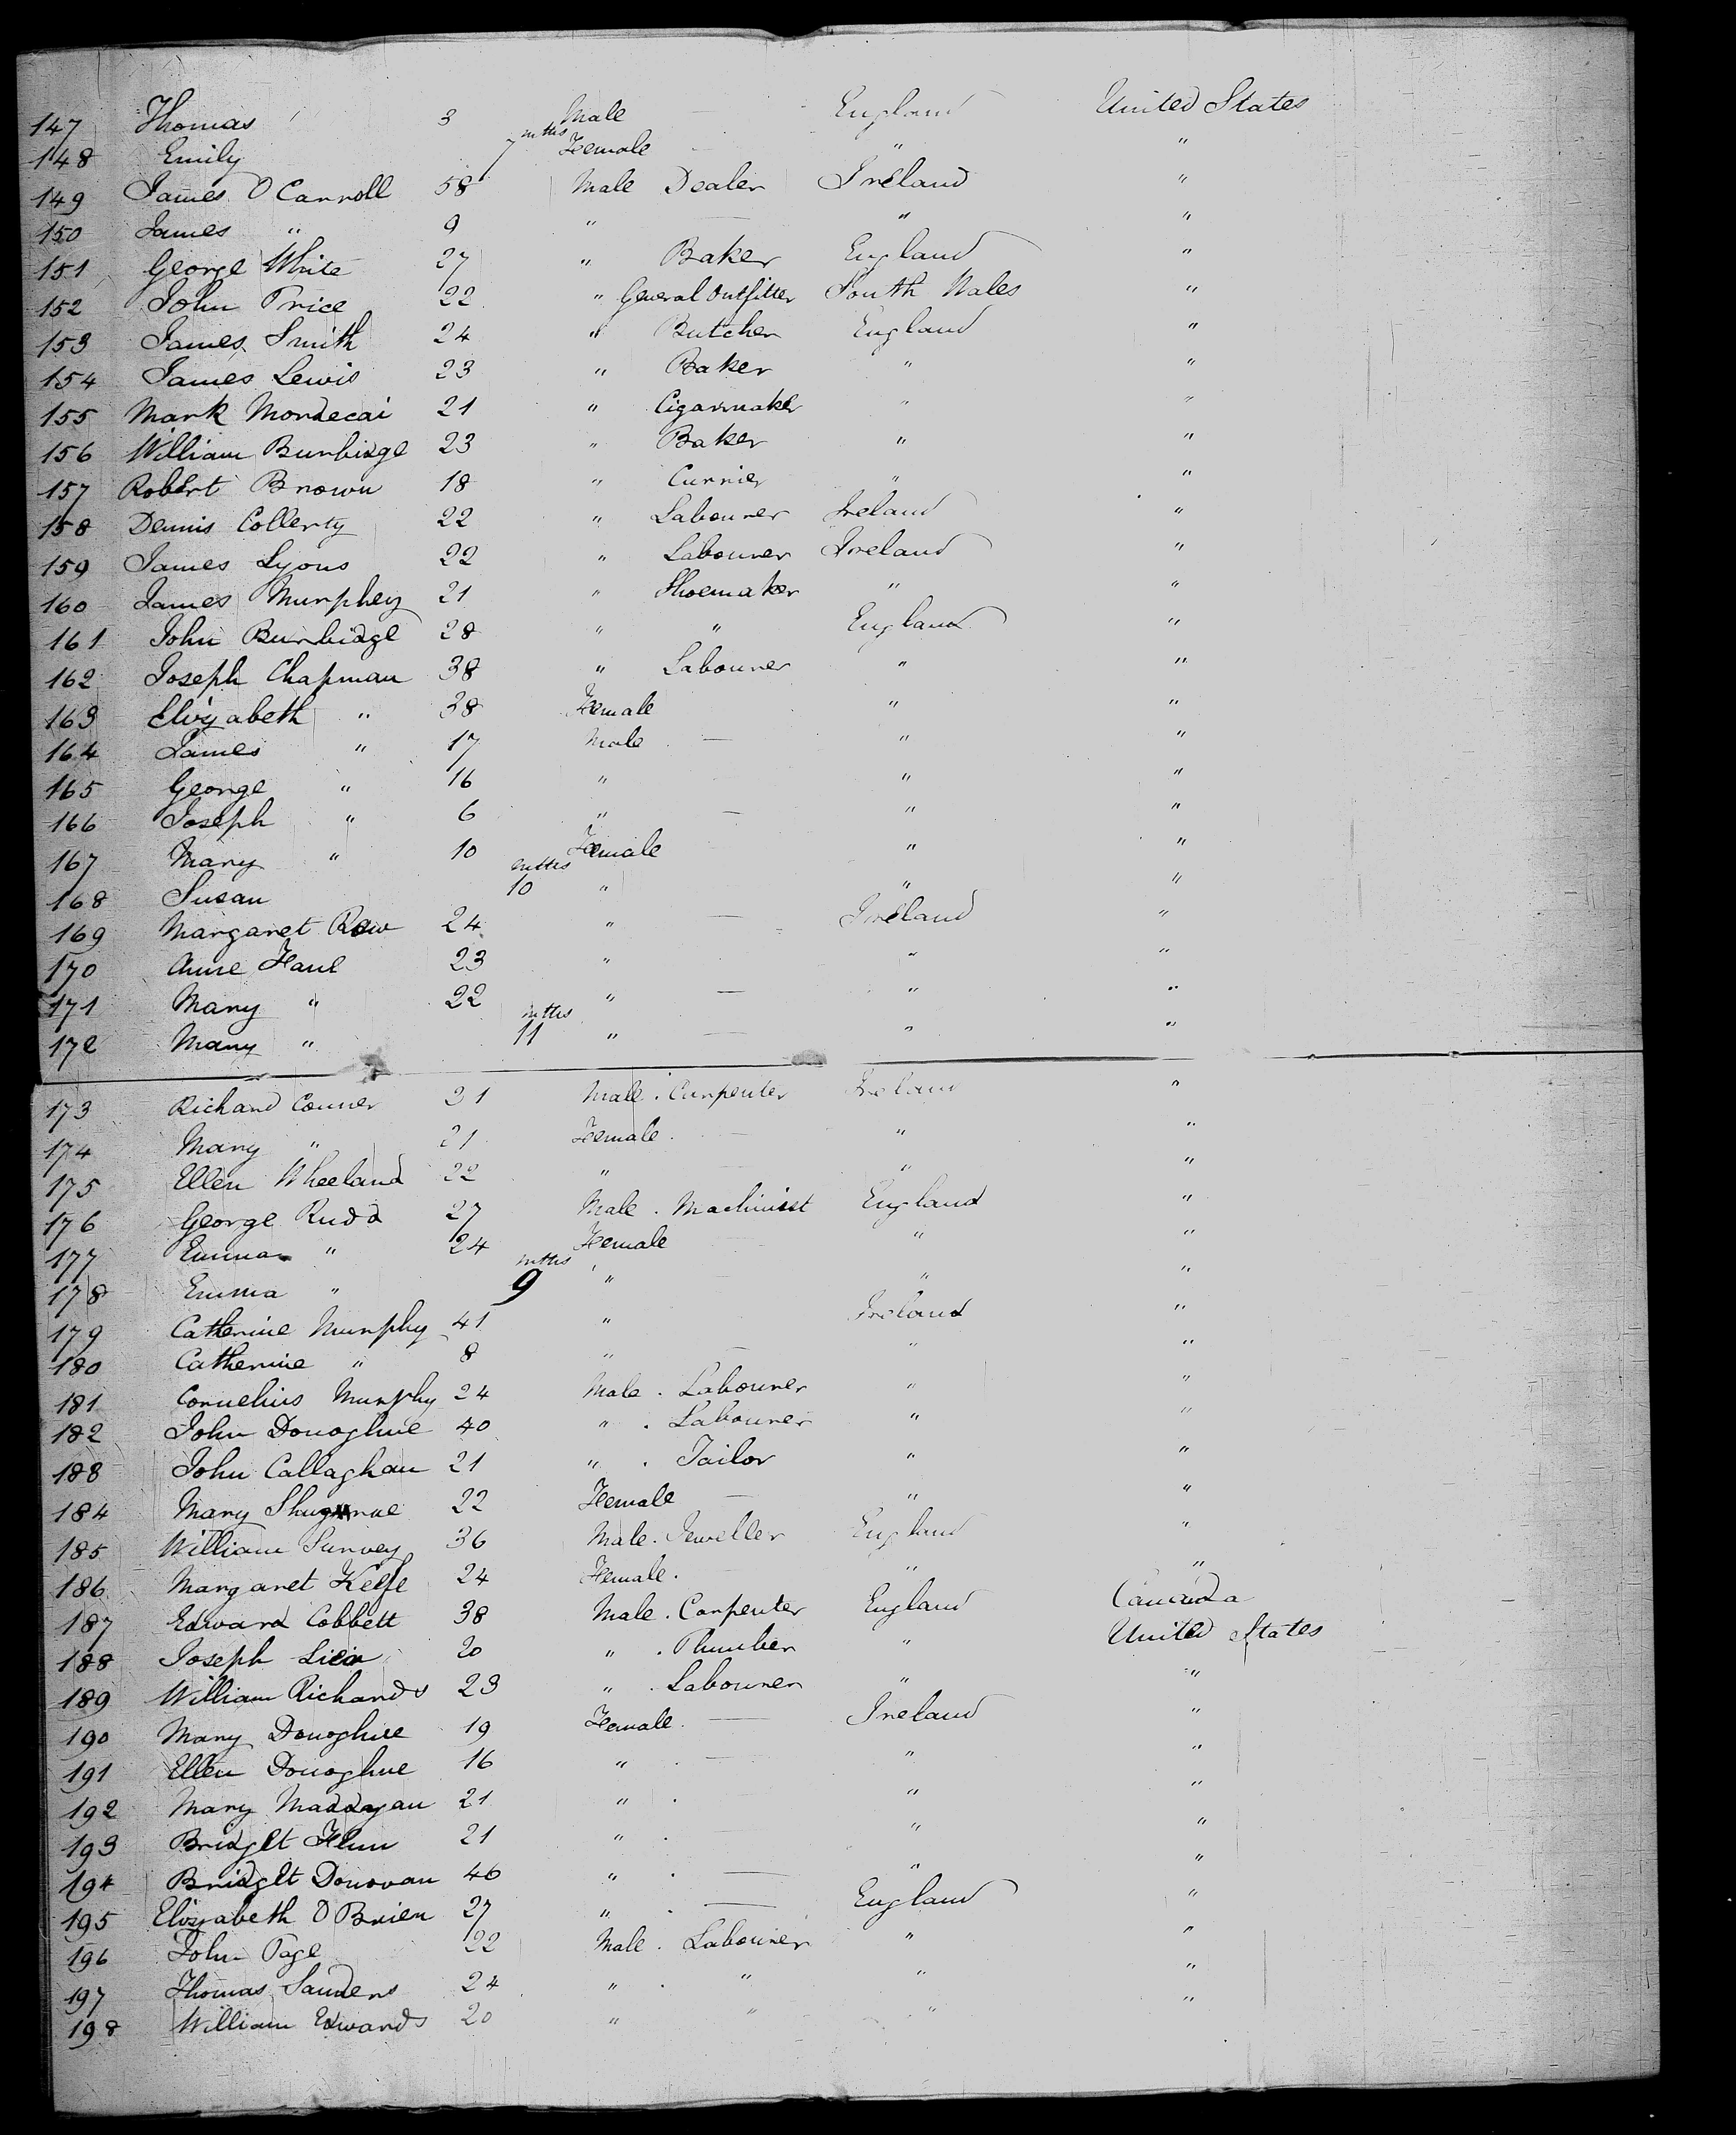 147 Thomas 3 Male — England United States
148 Emily 7 mths Female " "
149 James O Carroll 58 Male Dealer Ireland "
150 James " 9 " — " "
151 George White 27 " Baker England "
152 John Price 22 " General Outfitter South Wales "
153 James Smith 24 " Butcher England "
154 James Lewis 23 " Baker " "
155 Mark Mordecai 21 " Cigarmaker " "
156 William Burbidge 23 " Baker " "
157 Robert Brown 18 " Currier " "
158 Dennis Collerty 22 " Labourer Ireland "
159 James Lyons 22 " Labourer Ireland "
160 James Murphey 21 " Shoemaker " "
161 John Burbidge 28 " " England "
162 Joseph Chapman 38 " Labourer " "
163 Elizabeth " 38 Female " "
164 James " 17 Male — " "
165 George " 16 " " "
166 Joseph " 6 " — " "
167 Mary " 10 Female " "
168 Susan 10 mths " " "
169 Margaret 24 " — Ireland "
170 Anne 23 " " "
171 Mary " 22 " — " "
172 Mary " 11 mths " — " "
173 Richard Conner 31 Male . Carpenter Ireland "
174 Mary " 21 Female . — " "
175 Ellen Wheeland 22 " — " "
176 George Rudd 27 Male . Machinist England "
177 Emma " 24 Female " "
178 Emma " 9 mths " " "
179 Catherine Murphy 41 " Ireland "
180 Catherine " 8 " — " "
181 Cornelius Murphy 24 Male . Labourer " "
182 John Donoghue 40 " . Labourer " "
183 John Callaghan 21 " . Tailor " "
184 Mary 22 Female — " "
185 William Survey 36 Male . Jeweller England "
186 Margaret Keffe 24 Female . " "
187 Edward Cobbett 38 Male . Carpenter England Canada
188 Joseph 20 " . Plumber " United States
189 William Richards 23 " . Labourer " "
190 Mary Donoghue 19 Female . — Ireland "
191 Ellen Donoghue 16 " . — " "
192 Mary Maddagan 21 " . " "
193 Bridget Flinn 21 " . " "
194 Bridget Donovan 46 " . — " "
195 Elizabeth O Brien 27 " . — England "
196 John Page 22 Male . Labourer " "
197 Thomas Sanders 24 " . " " "
198 William Edwards 20 " " " "